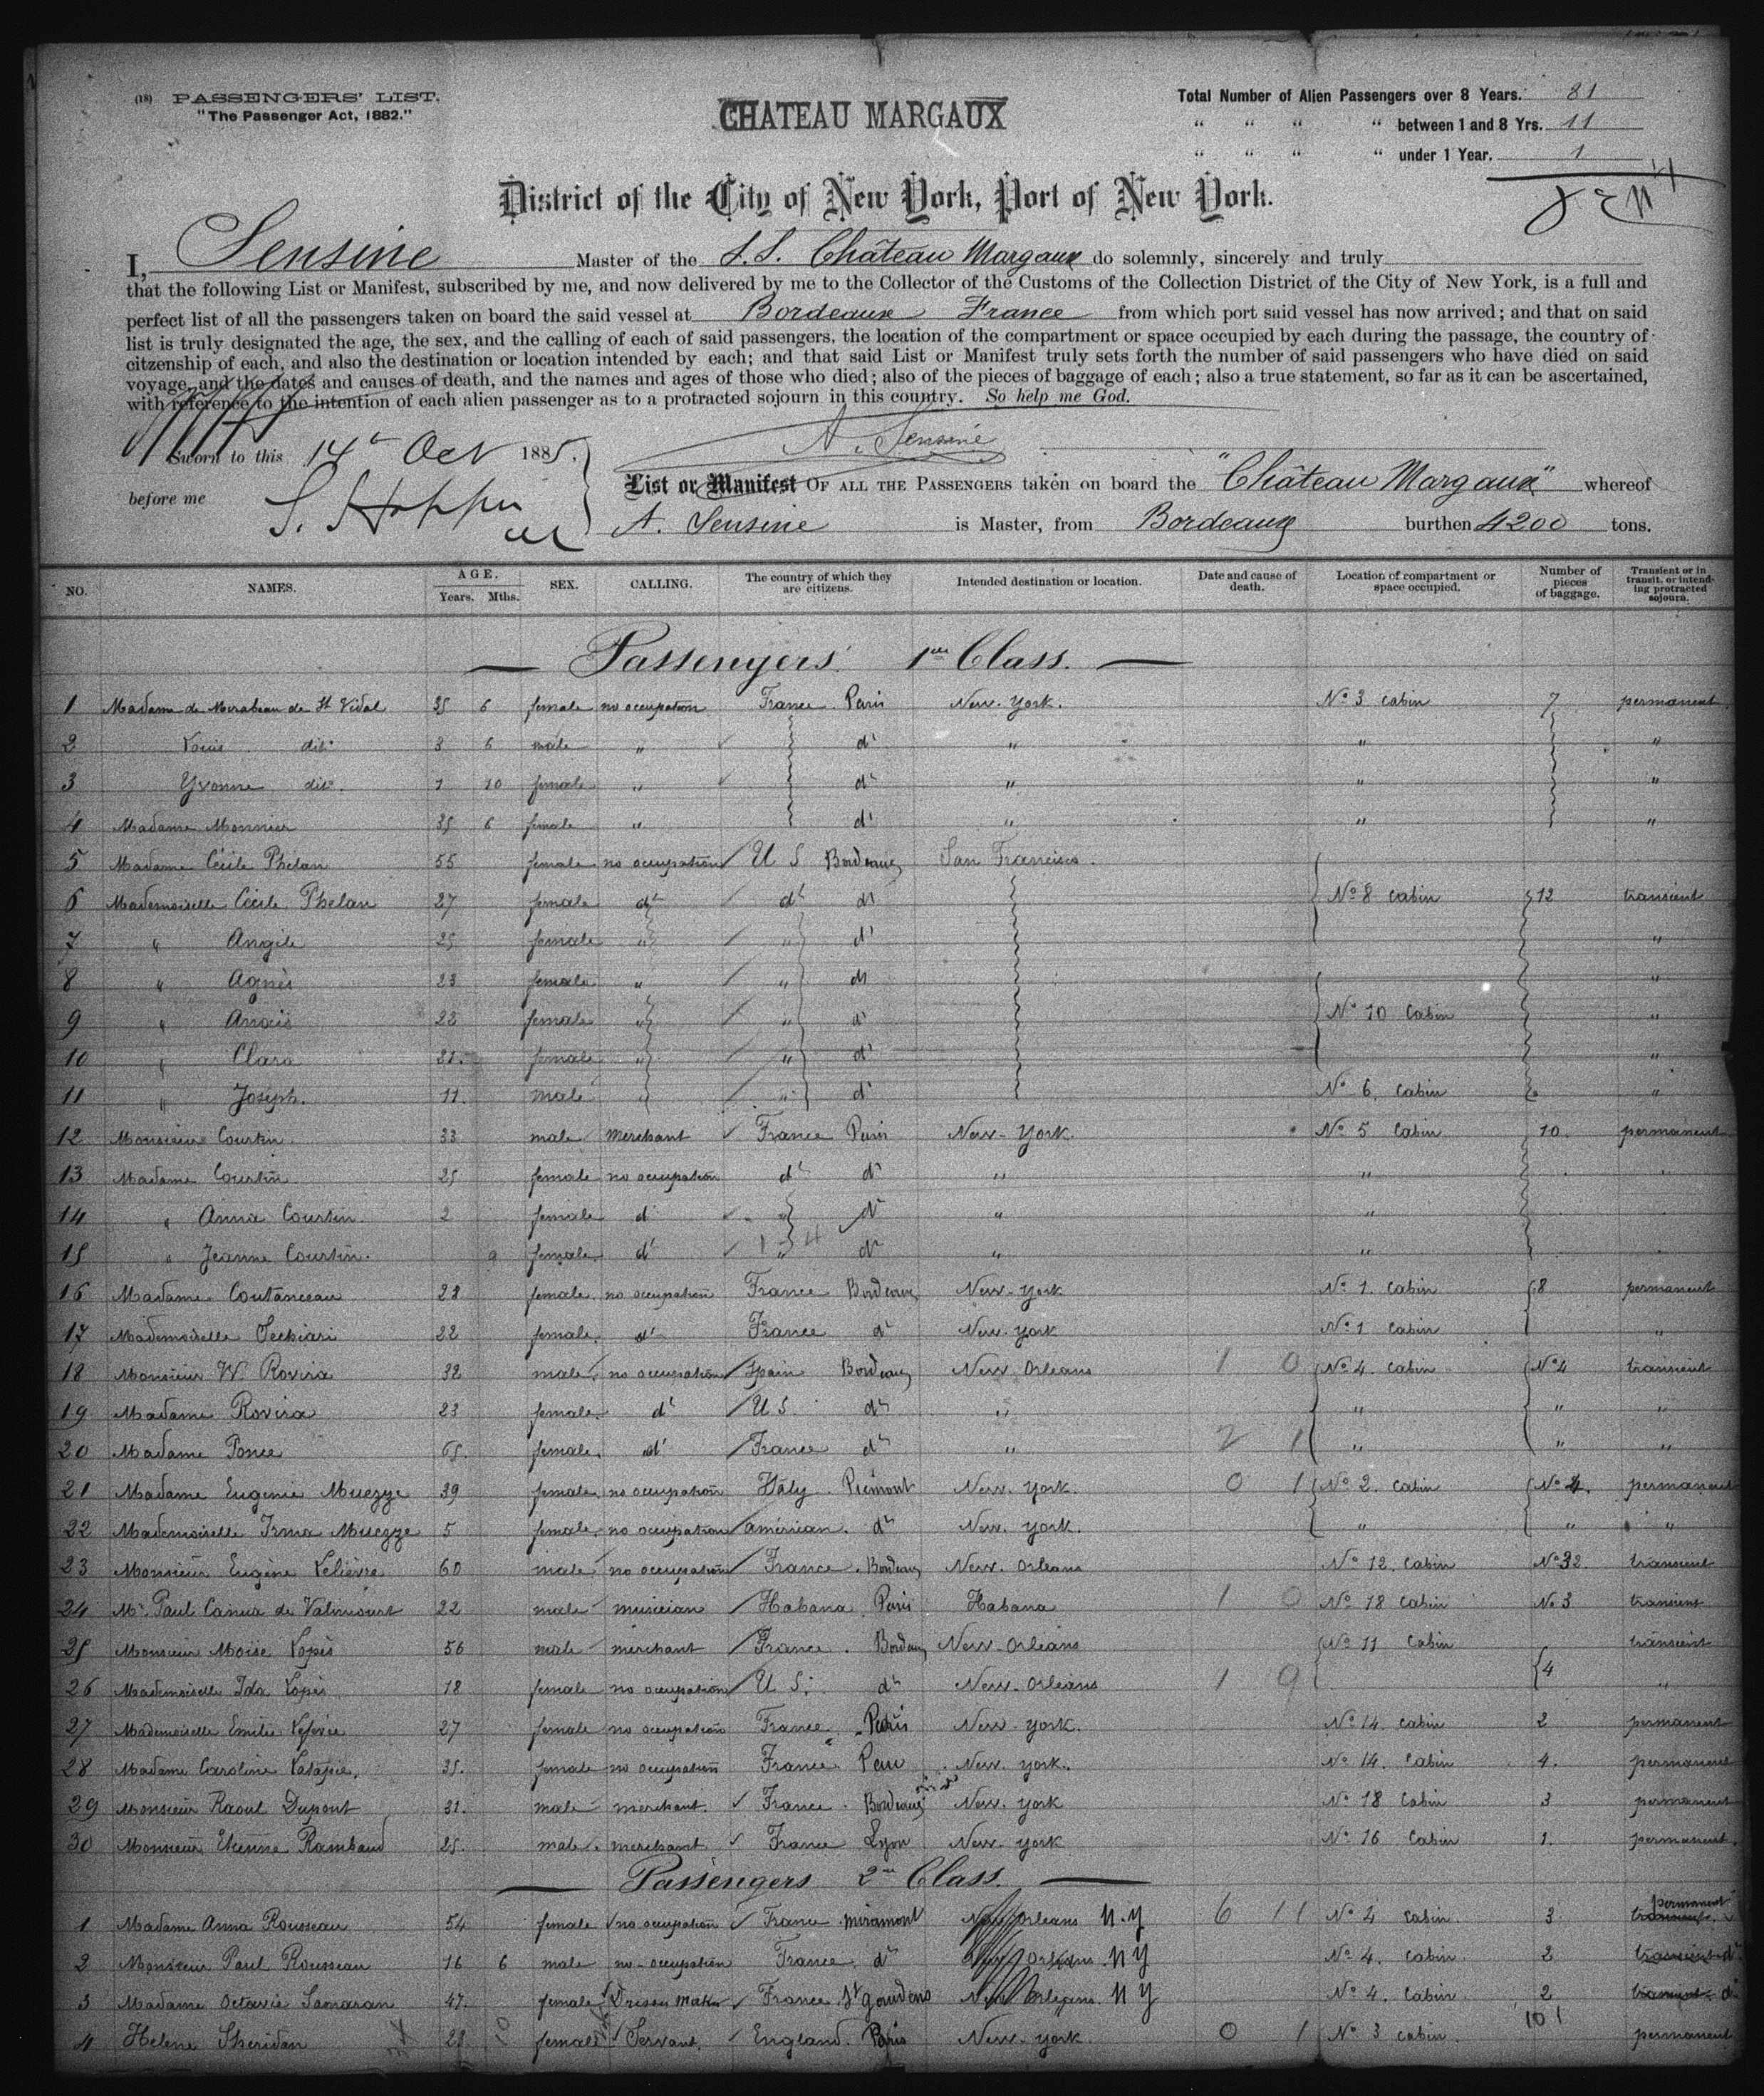 (18) PASSENGERS' LIST.
"The Passenger Act, 1882."
CHATEAU MARGAUX
Total Number of Alien Passengers over 8 Years. 81
" " " " between 1 and 8 Yrs. 11
" " " " under 1 Year. 1
District of the City of New York, Port of New York.
I, Sensine Master of the S.S. Château Margaux do solemnly, sincerely and truly
that the following List or Manifest, subscribed by me, and now delivered by me to the Collector of the Customs of the Collection District of the City of New York, is a full and
perfect list of all the passengers taken on board the said vessel at Bordeaux France from which port said vessel has now arrived; and that on said
list is truly designated the age, the sex, and the calling of each of said passengers, the location of the compartment or space occupied by each during the passage, the country of
citzenship of each, and also the destination or location intended by each; and that said List or Manifest truly sets forth the number of said passengers who have died on said
voyage, and the dates and causes of death, and the names and ages of those who died; also of the pieces of baggage of each; also a true statement, so far as it can be ascertained,
with reference to the intention of each alien passenger as to a protracted sojourn in this country. So help me God.
A. Sensine
Sworn to this 14th Oct 1885.
before me
List or Manifest OF ALL THE PASSENGERS taken on board the "Château Margaux" whereof
A. Sensine is Master, from Bordeaux burthen 4200 tons.
NO. NAMES. AGE. Years. Mths. SEX. CALLING. The country of which they are citizens. Intended destination or location. Date and cause of death. Location of compartment or space occupied. Number of pieces of baggage. Transient or in transit, or intending protracted sojourn.
Passengers 1re Class.
1 Madame de Mirabeau de St Vidal 35 6 female no occupation France Paris New-York. No 3 cabin 7 permanent
2 Louis dito 3 6 male " do " " "
3 Yvonne dito. 1 10 female " do " " "
4 Madame Monnier 35 6 female " do " " "
5 Madame Cécile Phelan 55 female no occupation U S Bordeaux San Francisco.
6 Mademoiselle Cécile Phelan 27 female do do do No 8 cabin 12 transient
7 " Angèle 25 female " " do "
8 " Agnès 23 female " " do "
9 " Anaïs 22 female " " do No 10 Cabin "
10 " Clara 21. female " " do "
11 " Joseph. 11. male " " do No 6. Cabin "
12 Monsieur Courtin. 33 male merchant France Paris New-York. No 5 Cabin 10. permanent
13 Madame Courtin 25 female no occupation do do " "
14 " Anna Courtin 2 female do " do " "
15 " Jeanne Courtin. 9 female do " do " "
16 Madame Coutanceau 28 female no occupation France Bordeaux New-York No 1. Cabin 8 permanent
17 Mademoiselle 22 female do France do New-York No 1 Cabin "
18 Monsieur W. Rovira 32 male no occupation Spain Bordeaux New Orleans 1 0 No 4. Cabin No 4 transient
19 Madame Rovira 23 female do U S. do " " " "
20 Madame Ponce 65. female do France do " 2 1 " " "
21 Madame Eugénie Muezze 39 female no occupation Italy Piémont New York. 0 1 No 2. Cabin No 4. permanent
22 Mademoiselle Irma Muezze 5 female no occupation american. do New. York. " " "
23 Monsieur Eugène Lelièvre 60 male no occupation France. Bordeaux New. Orleans No 12. Cabin No 32. transient
24 Mr Paul de Valincourt 22 male musician Habana Paris Habana 1 0 No 18 Cabin No 3 transient
25 Monsieur Moïse Lopès 56 male merchant France. Bordeaux New-Orleans No 11 Cabin transient
26 Mademoiselle Ida Lopès 18 female no occupation U S. do New-Orleans 1 9 4 "
27 Mademoiselle Emilie 27 female no occupation France Paris New-York. No 14. Cabin 2 permanent
28 Madame Caroline 35. female no occupation France New. York. No 14. Cabin 4. permanent
29 Monsieur Raoul Dupont 31. male merchant. France. Bordeaux New. York No 18 Cabin 3 permanent
30 Monsieur Etienne Rambaud 25. male merchant France Lyon New. York No 16 Cabin 1. permanent.
Passengers 2me Class.
1 Madame Anna Rousseau 54 female no occupation France miramont New Orleans N.Y 6 11 No 4 Cabin. 3 transient permanent
2 Monsieur Paul Rousseau 16 6 male no-occupation France do New Orleans N Y No 4. Cabin 2 transient do
3 Madame Octavie Samaran 47. female Dress Maker France St gaudens New Orleans. N Y No 4. Cabin. 2 transient do
101
4 Helene Sheridan 28 female Servant. England. Paris New-York 0 1 No 3 cabin permanent